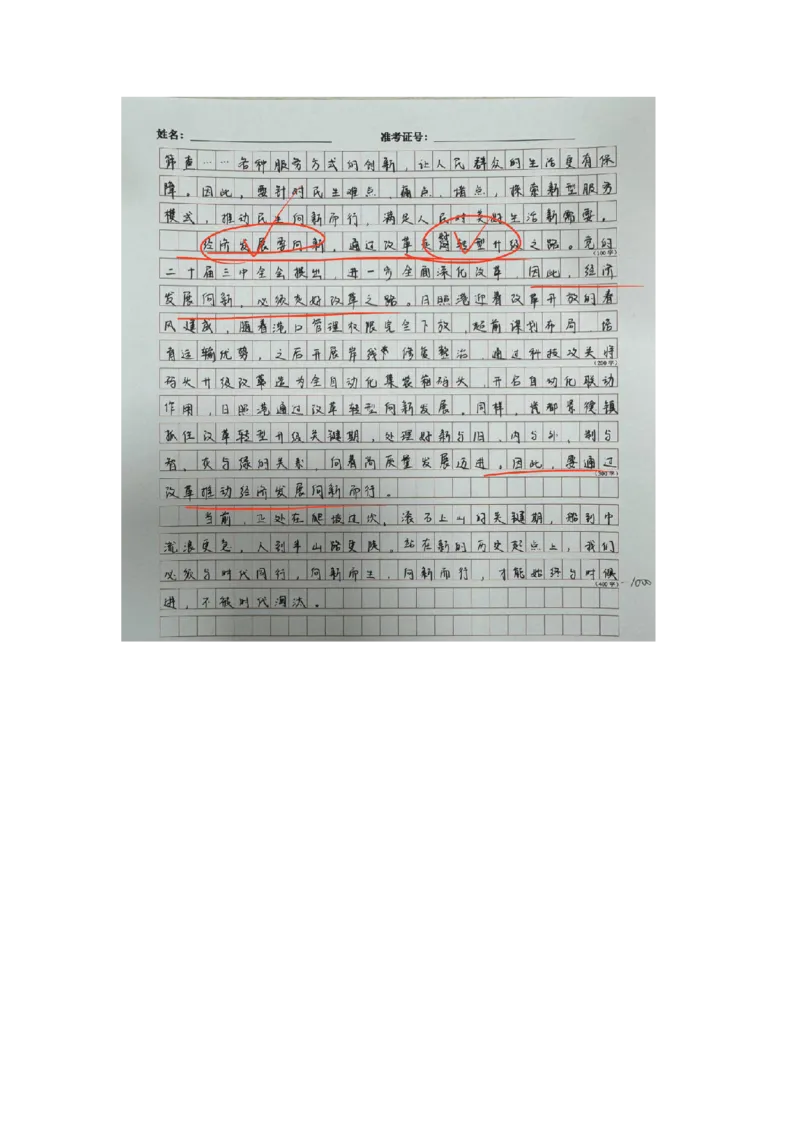 姓名： 准考证号：
筛查……各种服务方式的创新，让人民群众的生活更有保
障。因此，要针对民生难点、痛点、堵点，探索新型服务
模式，推动民生向新而行，满足人民对美好生活新需要。
经济发展要向新，通过改革走 转型升级之路。党的
(100字)
二十届三中全会提出，进一步全面深化改革，因此，经济
发展向新，必须走好改革之路。日照港迎着改革开放的春
风建成，随着港口管理权限完全下放，超前谋划布局，培
育运输优势，之后开展岸线 修复整治，通过科技攻关将
(200字)
码头升级改革造为全自动化集装箱码头，开启自动化联动
作用，日照港通过改革转型向新发展。同样，瓷都景德镇
抓住改革转型升级关键期，处理好新与旧、内与外、制与
智、灰与绿的关系，向着高质量发展迈进。因此，要通过
(300字)
改革推动经济发展向新而行。
当前，正处在爬坡过坎、滚石上山的关键期，船到中
流浪更急，人到半山路更陡。站在新的历史起点上，我们
必须与时代同行，向新而生，向新而行，才能始终与时俱
(400字) -1000
进，不被时代淘汰。